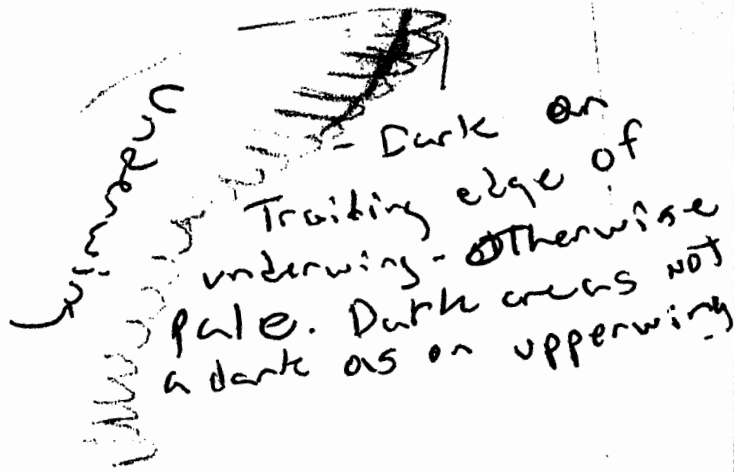 - Dark on
Trailing edge of
underwing - Otherwise
pale. Dark areas not
a dark as on upperwing